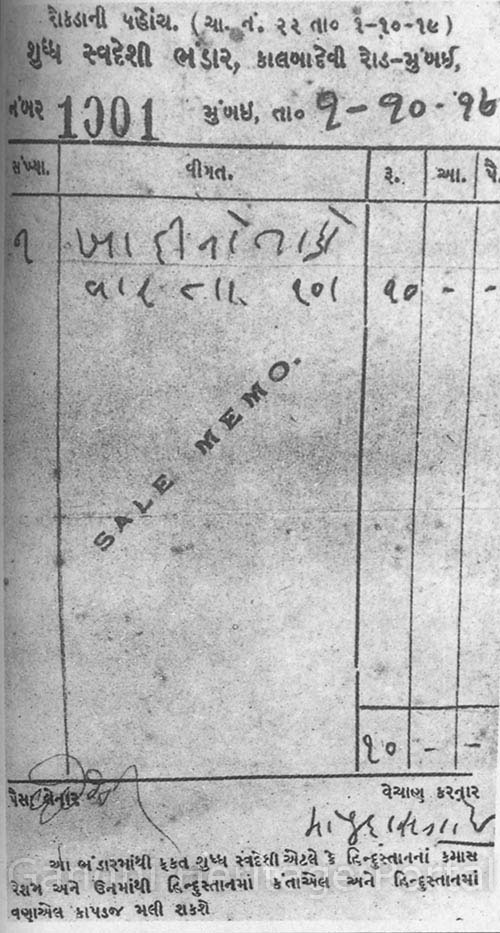 રોકડાની પહોંચ. ( ચા. નં. ૨૨ તા૦ ૧-૧૦-૧૯ )
શુધ્ધ સ્વદેશી ભંડાર, કાલબાદેવી રોડ-મુંબઈ,
નંબર 1001 મુંબઇ, તા૦ ૧-૧૦-૧૯
સંખ્યા. વીગત. રૂ. આ. પૈ
૧ ખાદીનો તાકો
વાર ના ૧૦ા ૧૦ - -
SALE MEMO.
૧૦ - -
પૈસા લેનાર વેચાણ કરનાર
આ ભંડારમાંથી ફકત શુધ્ધ સ્વદેશી એટલે કે હિન્દુસ્તાનનાં કપાસ
રેશમ અને ઉનમાંથી હિન્દુસ્તાનમાં કંતાએલ અને હિન્દુસ્તાનમાં
વણાએલ કાપડજ મલી શકશે